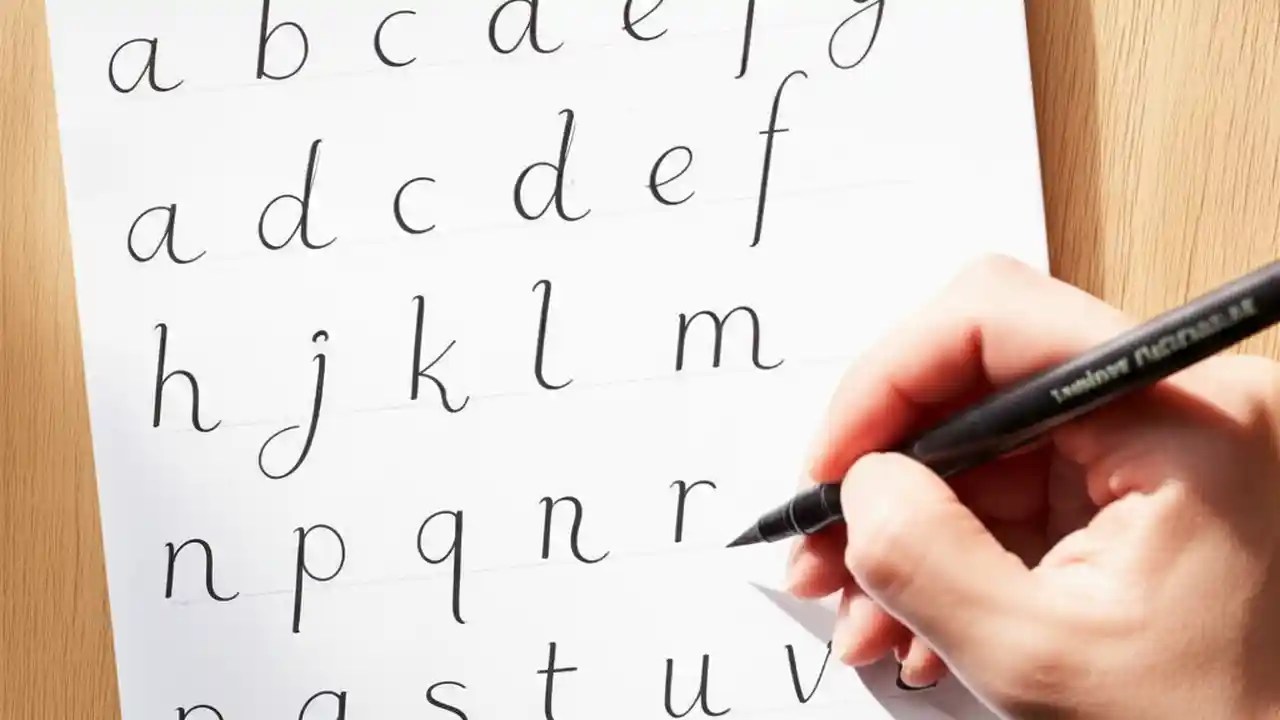 a b c d e f g
a d c d e f
h j k l m
n p q n r
s t u v